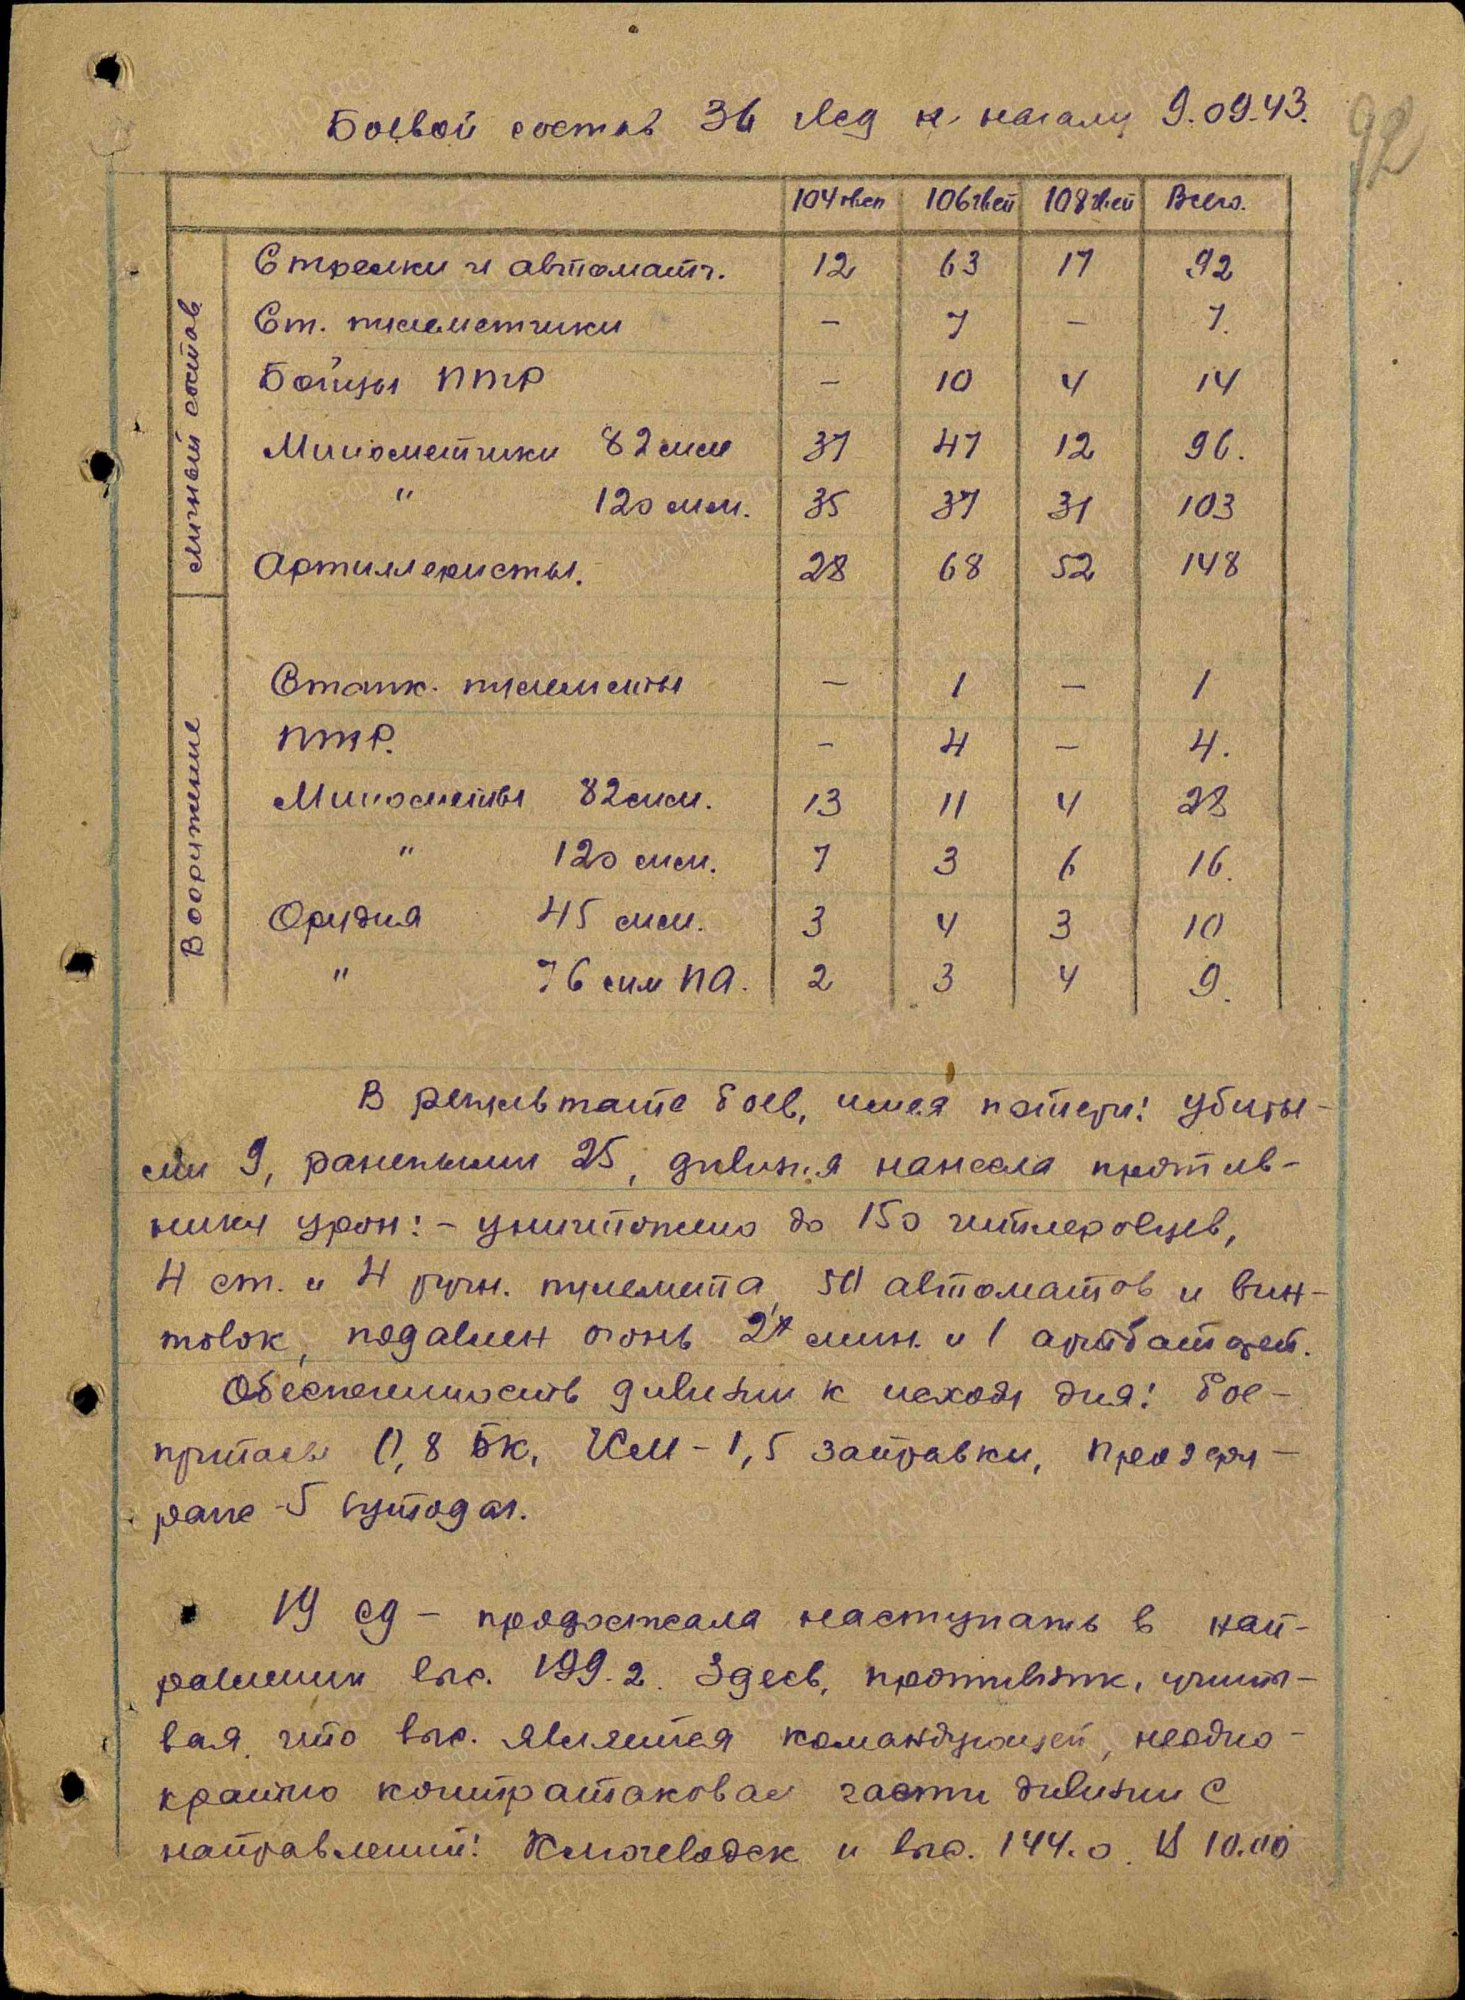 Боевой состав 36 гвсд к началу 9.09.43.
92
104 гвсп 106 гвсп 108 гвсп Всего.
Личный состав
Стрелки и автоматч. 12 63 17 92
Ст. пулеметчики – 7 – 7.
Бойцы ПТР – 10 4 14
Минометчики 82 мм 37 47 12 96.
" 120 мм. 35 37 31 103
Артиллеристы. 28 68 52 148
Вооружение
Станк. пулеметы – 1 – 1
ПТР. – 4 – 4.
Минометы 82 мм. 13 11 4 28
" 120 мм. 7 3 6 16.
Орудия 45 мм. 3 4 3 10
" 76 мм ПА. 2 3 4 9.
В результате боев, имея потери: убиты-
ми 9, ранеными 25, дивизия нанесла против-
нику урон: – уничтожено до 150 гитлеровцев,
4 ст. и 4 ручн. пулемета, 50 автоматов и вин-
товок, подавлен огонь 2х мин. и 1 артбатарей.
Обеспеченность дивизии к исходу дня: бое-
припасы 0,8 БК, ГСМ – 1,5 заправки, продфу-
раж – 5 сутодач.
19 сд – продолжала наступать в нап-
равлении выс. 199.2. Здесь, противник, учиты-
вая, что выс. является командующей, неодно-
кратно контратаковал части дивизии с
направлений: Ключеводск и выс. 144.0. В 10.00